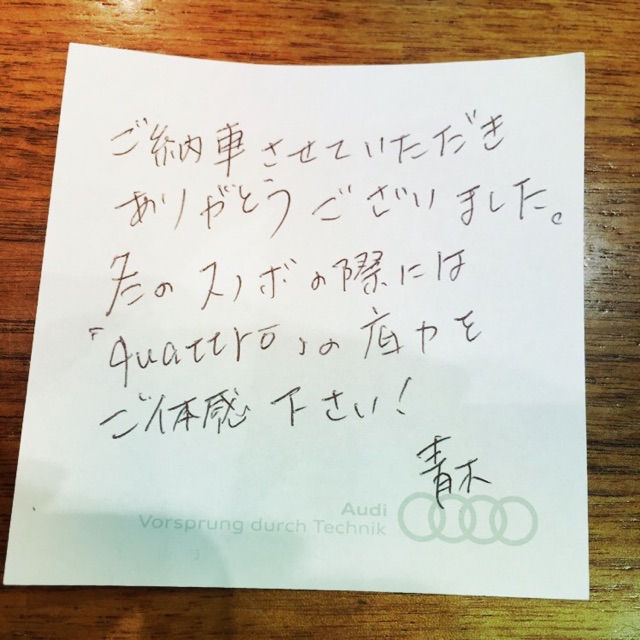 ご納車させていただき
ありがとうございました。
冬のスノボの際には
「quattro」の底力を
ご体感下さい！
青木
Audi
Vorsprung durch Technik